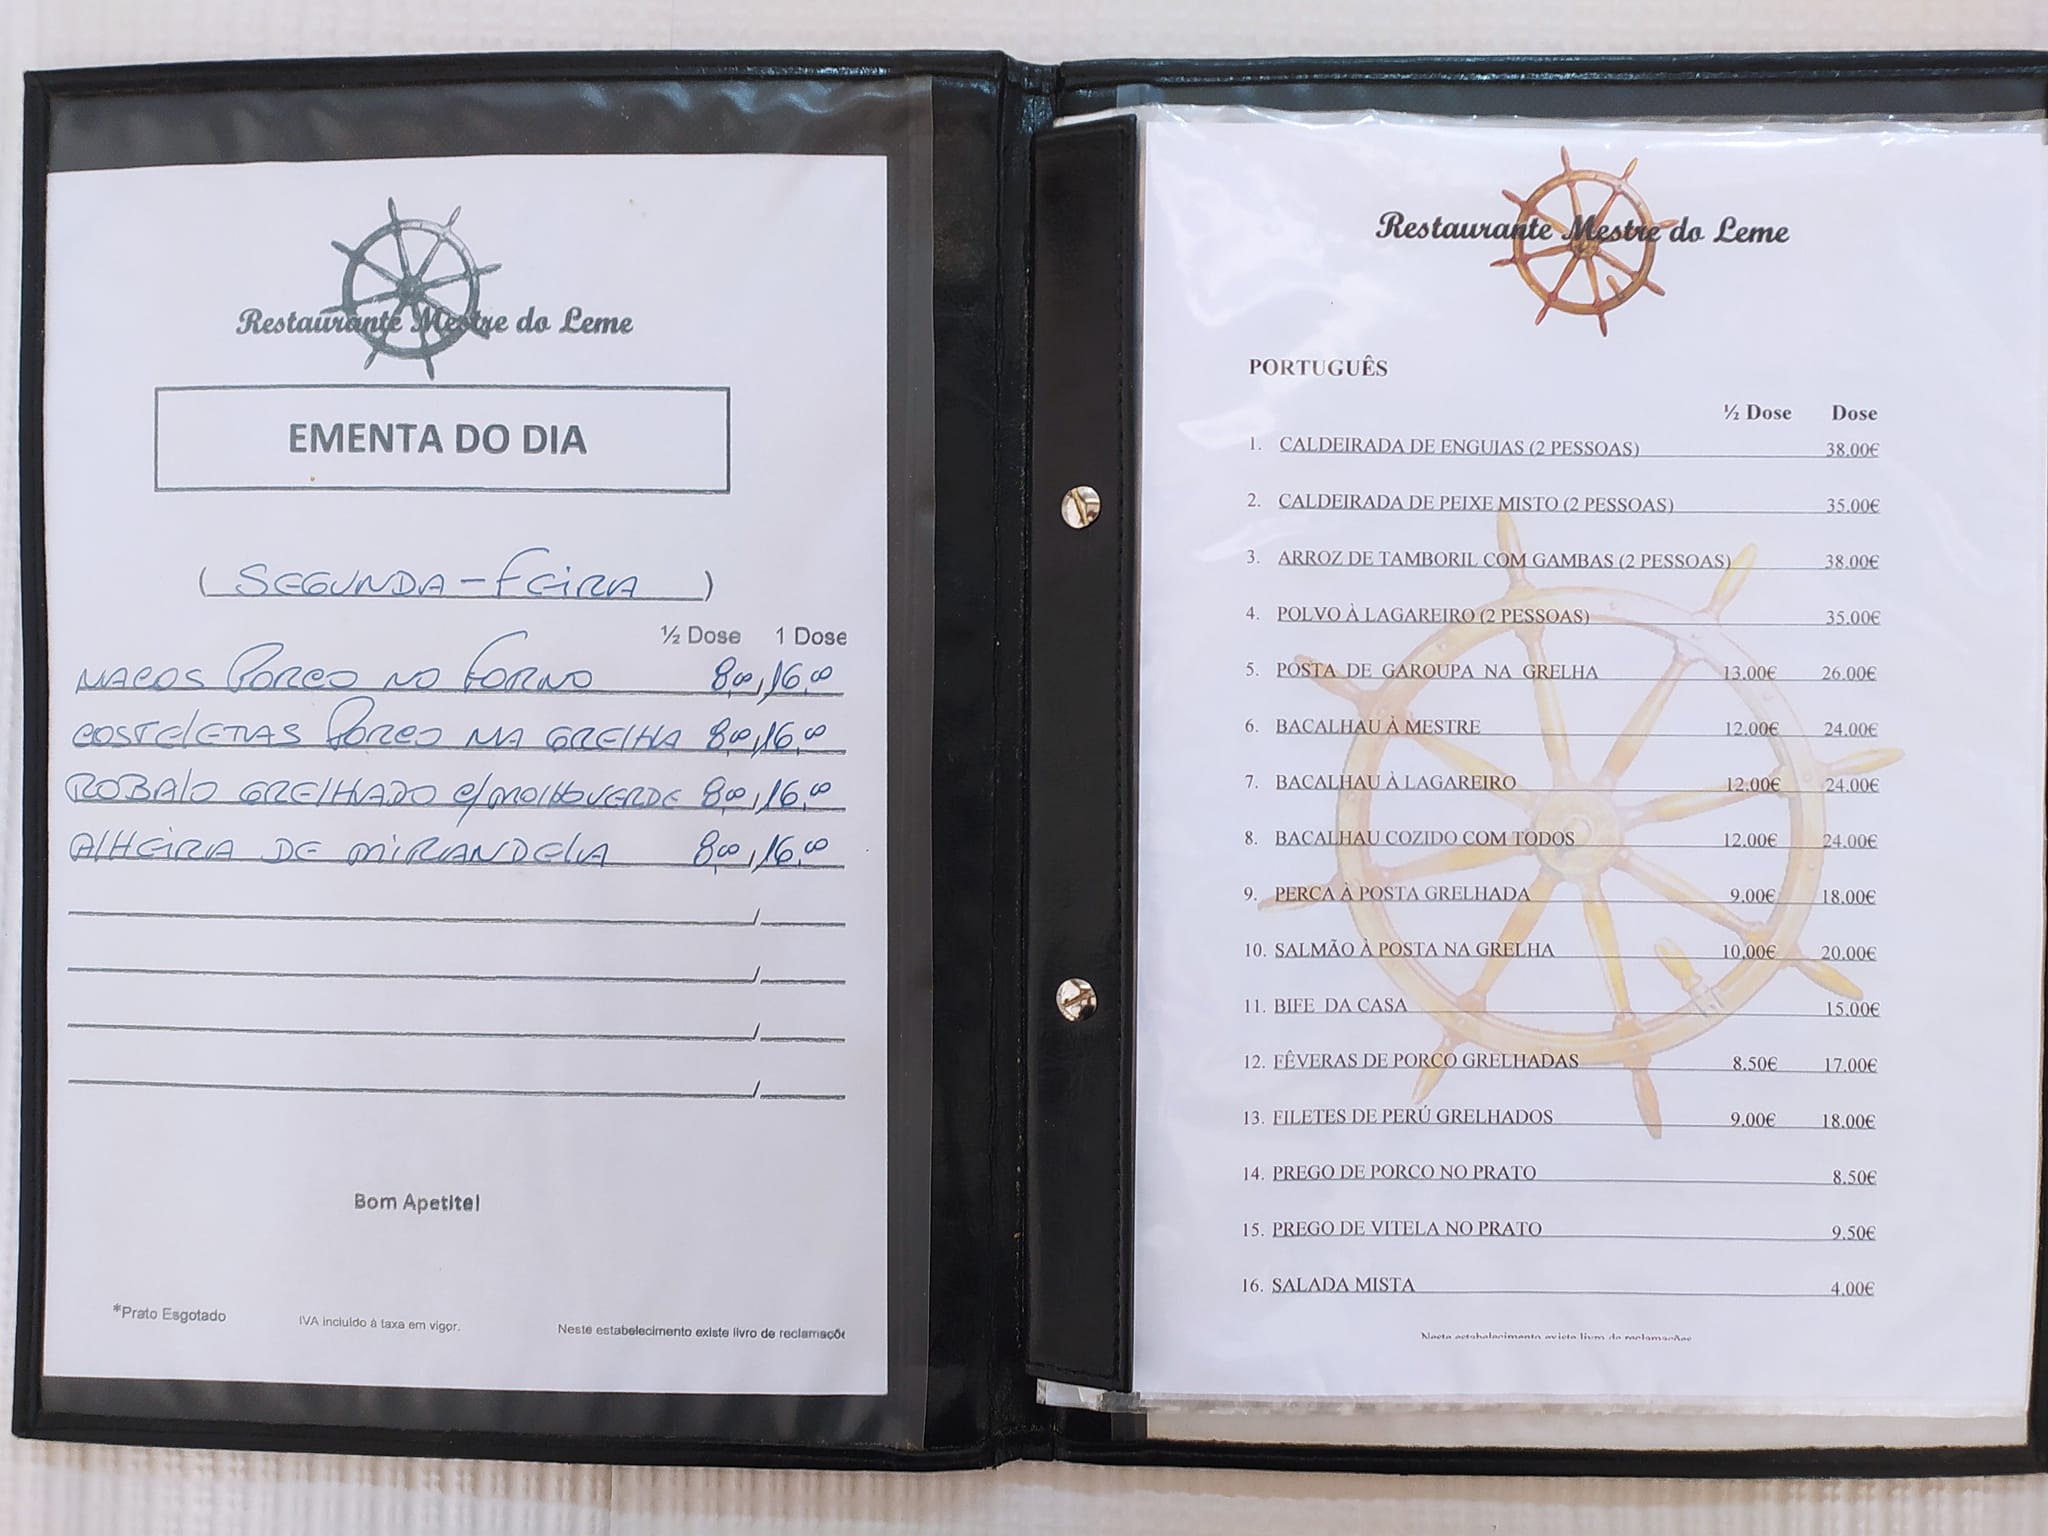 Restaurante Mestre do Leme
EMENTA DO DIA
( SEGUNDA-FEIRA )
½ Dose 1 Dose
MACOS PORCO NO FORNO 8,00, 16,00
COSTELETAS PORCO NA GRELHA 8,00, 16,00
ROBALO GRELHADO C/MOLHO VERDE 8,00, 16,00
ALHEIRA DE MIRANDELA 8,00, 16,00
Bom Apetite!
*Prato Esgotado IVA incluido à taxa em vigor. Neste estabelecimento existe livro de reclamaçõe
Restaurante Mestre do Leme
PORTUGUÊS
½ Dose Dose
1. CALDEIRADA DE ENGUIAS (2 PESSOAS) 38.00€
2. CALDEIRADA DE PEIXE MISTO (2 PESSOAS) 35.00€
3. ARROZ DE TAMBORIL COM GAMBAS (2 PESSOAS) 38.00€
4. POLVO À LAGAREIRO (2 PESSOAS) 35.00€
5. POSTA DE GAROUPA NA GRELHA 13.00€ 26.00€
6. BACALHAU À MESTRE 12.00€ 24.00€
7. BACALHAU À LAGAREIRO 12.00€ 24.00€
8. BACALHAU COZIDO COM TODOS 12.00€ 24.00€
9. PERCA À POSTA GRELHADA 9.00€ 18.00€
10. SALMÃO À POSTA NA GRELHA 10.00€ 20.00€
11. BIFE DA CASA 15.00€
12. FÊVERAS DE PORCO GRELHADAS 8.50€ 17.00€
13. FILETES DE PERÚ GRELHADOS 9.00€ 18.00€
14. PREGO DE PORCO NO PRATO 8.50€
15. PREGO DE VITELA NO PRATO 9.50€
16. SALADA MISTA 4.00€
Neste estabelecimento existe livro de reclamações